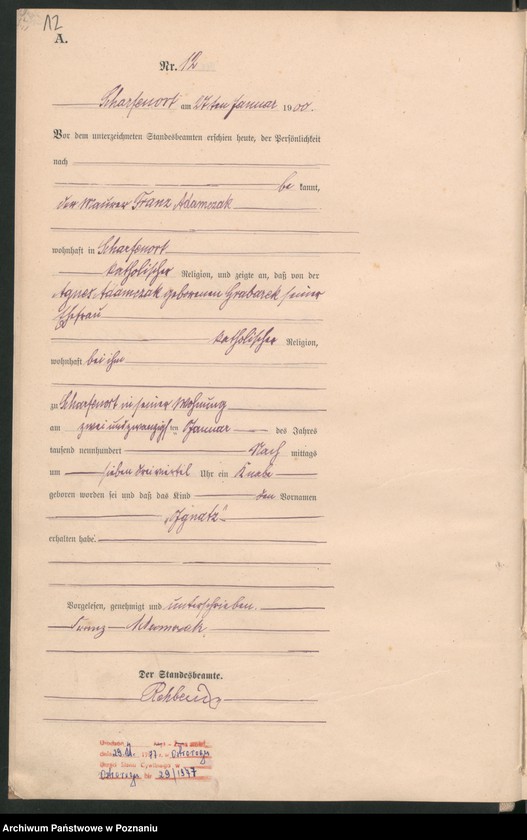 12
A.
Nr. 12
Scharfenort am 27ten Januar 1900.
Vor dem unterzeichneten Standesbeamten erschien heute, der Persönlichkeit
nach
be kannt,
der Maurer Franz Adamczak
wohnhaft in Scharfenort
katholischer Religion, und zeigte an, daß von der
Agnes Adamczak geborenen Grabarek seiner
Ehefrau
katholischer Religion,
wohnhaft bei ihm
zu Scharfenort in seiner Wohnung
am zwei und zwanzigsten Januar des Jahres
tausend neunhundert Nach mittags
um sieben dreiviertel Uhr ein Knabe
geboren worden sei und daß das Kind den Vornamen
„Ignatz“
erhalten habe.
Vorgelesen, genehmigt und unterschrieben.
Franz Adamczak
Der Standesbeamte.
Nr 29/1977
Archiwum Państwowe w Poznaniu